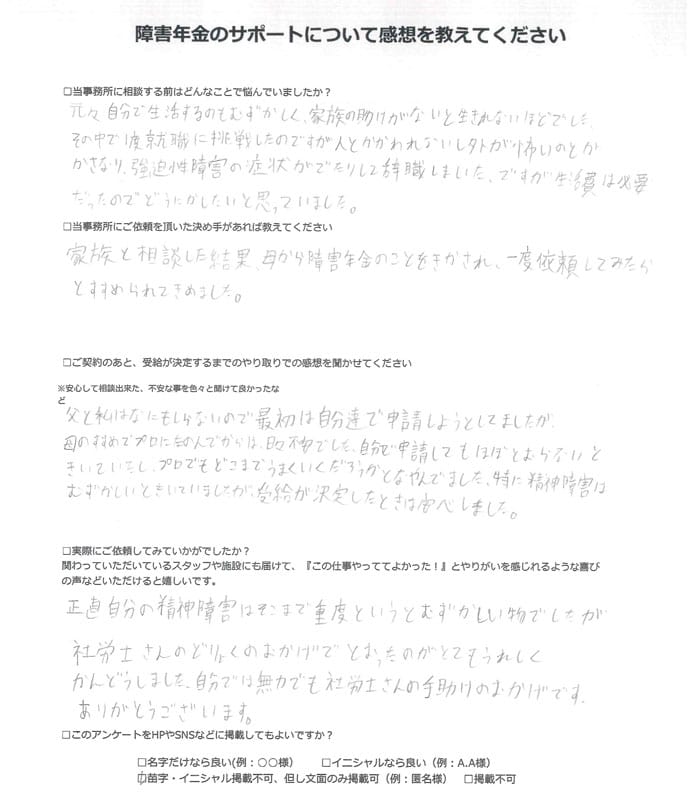 障害年金のサポートについて感想を教えてください
□当事務所に相談する前はどんなことで悩んでいましたか？
元々自分で生活するのもむずかしく、家族の助けがないと生きれないほどでした、
その中で1度就職に挑戦したのですが人とかかわれないし外が怖いのとか
かさなり、強迫性障害の症状がでたりして辞職しまいた、ですが生活費は必要
だったのでどうにかしたいと思っていました。
□当事務所にご依頼を頂いた決め手があれば教えてください
家族と相談した結果、母から障害年金のことをきかされ、一度依頼してみたら
とすすめられてきめました。
□ご契約のあと、受給が決定するまでのやり取りでの感想を聞かせてください
※安心して相談出来た、不安な事を色々と聞けて良かったな
ど
父と私はなにもしらないので最初は自分達で申請しようとしてましたが、
母のすすめでプロにたのんでからは、日々不安でした、自分で申請してもほぼとおらないと
きいていたし、プロでもどこまでうまくいくだろうかとなやんでました、特に精神障害は
むずかしいときいていましたが、受給が決定したときは安心しました。
□実際にご依頼してみていかがでしたか？
関わっていただいているスタッフや施設にも届けて、『この仕事やっててよかった！』とやりがいを感じれるような喜び
の声などいただけると嬉しいです。
正直自分の精神障害はそこまで重度というとむずかしい物でしたが
社労士さんのどりょくのおかげでとおったのがとてもうれしく
かんどうしました、自分では無力でも社労士さんの手助けのおかげです、
ありがとうございます。
□このアンケートをHPやSNSなどに掲載してもよいですか？
□名字だけなら良い(例：〇〇様） □イニシャルなら良い（例：A.A様）
□苗字・イニシャル掲載不可、但し文面のみ掲載可（例：匿名様） □掲載不可